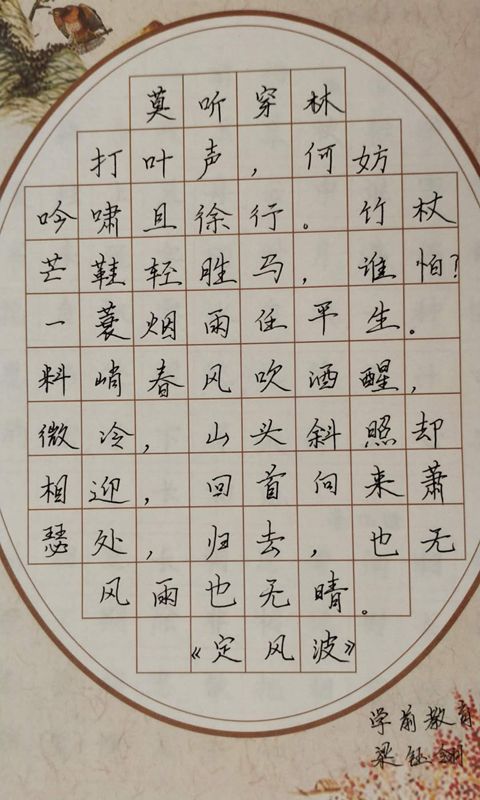 莫听穿林
打叶声，何妨
吟啸且徐行。竹杖
芒鞋轻胜马，谁怕？
一蓑烟雨任平生。
料峭春风吹酒醒，
微冷，山头斜照却
相迎，回首向来萧
瑟处，归去，也无
风雨也无晴。
《定风波》
学前教育
梁钰翊